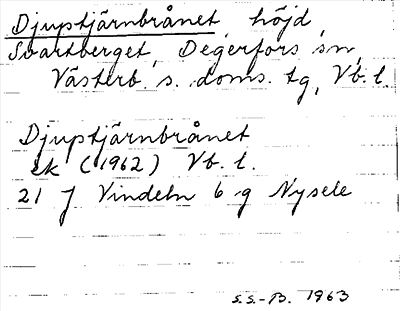 Djuptjärnbrånet, höjd,
Svartberget, Degerfors sn,
Västerb. s. doms. tg, Vb. l.
Djuptjärnbrånet
ek (1962) Vb. l.
21 J Vindeln 6 g Nysele
S.S.-B. 1963